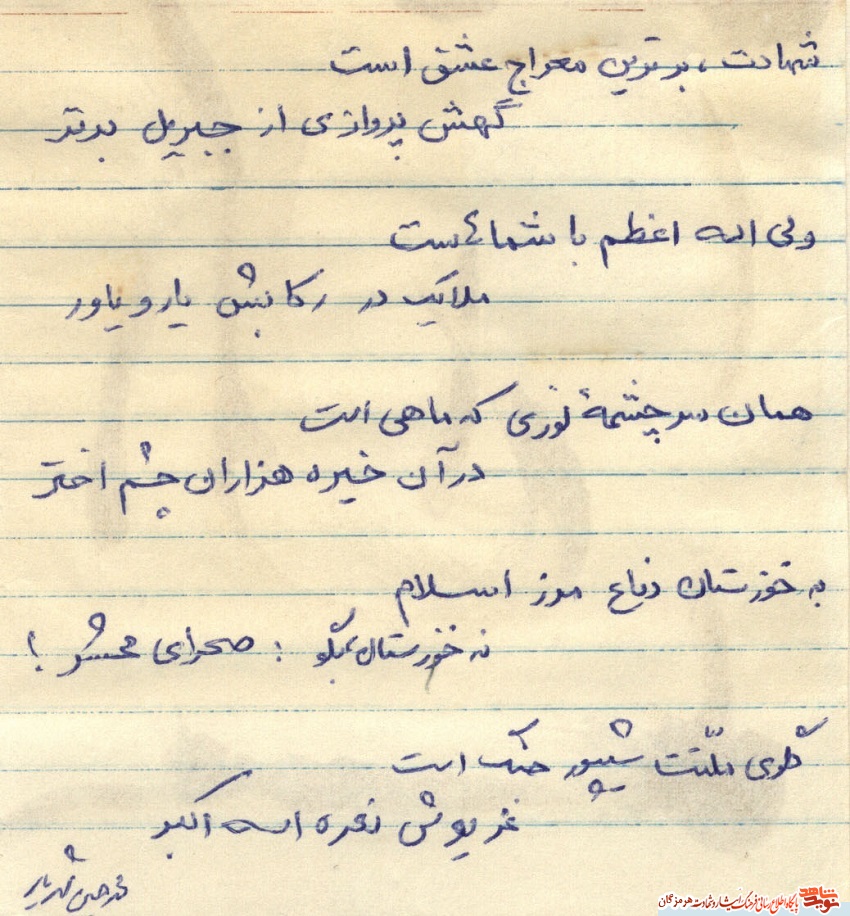 شهادت ، برترین معراج عشق است
گهش پروازی از جبریل برتر
ولی اله اعظم با شمائست
ملایک در رکابش یار و یاور
همان سرچشمهٔ نوری که ماهی است
در آن خیره هزاران چشم اختر
به خوزستان دفاع مرز اسلام
نه خوزستان، بگو : صحرای محشر !
گلوی ملّتت شیپور جنگ است
غریوش نعره اله اکبر
محمد حسین شهریار
نوید شاهد
پایگاه اطلاع رسانی فرهنگ ایثار و شهادت هرمزگان